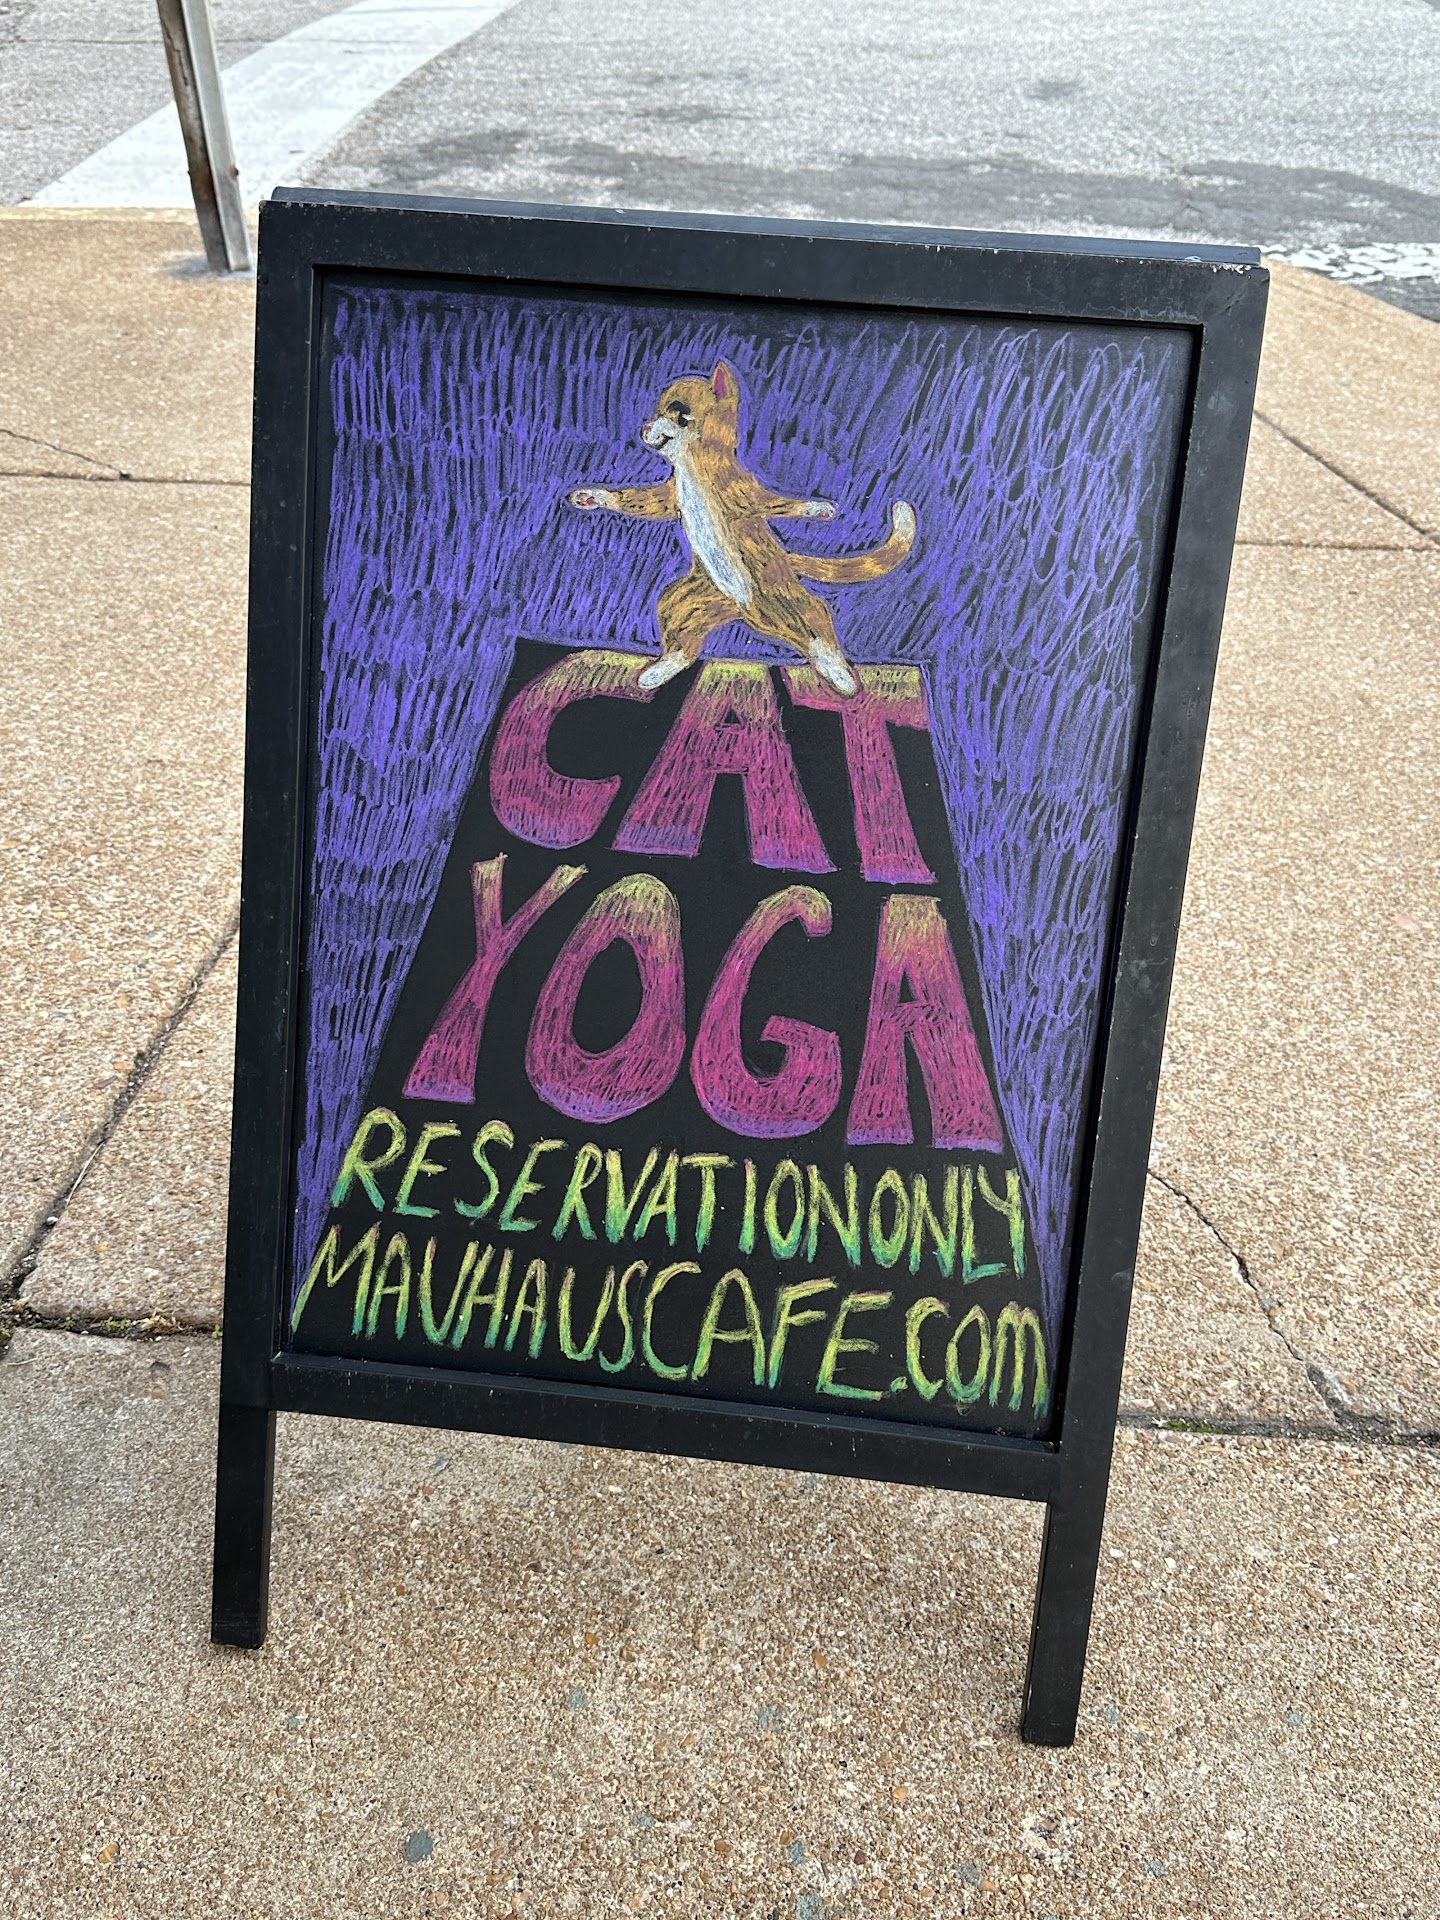 CAT
YOGA
RESERVATION ONLY
MAUHAUSCAFE.COM